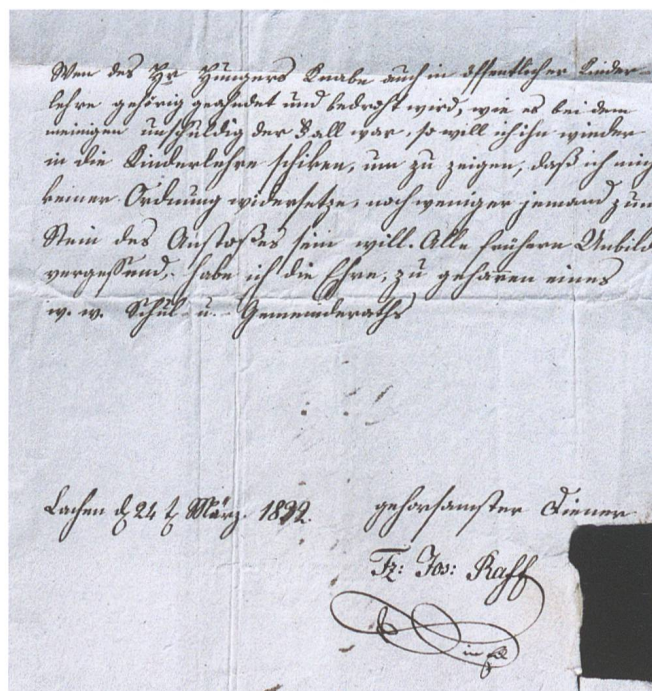 Wen des Hr Hungers Knabe auch in öffentlicher Kinder-
lehre gehörig geahndet und bedroht wird, wie es bei dem
meinigen unschuldig der Fall war, so will ich ihn wieder
in die Kinderlehre schiken, um zu zeigen, daß ich mich
keiner Ordnung widersetze, noch weniger jemand zum
Stein des Anstoßes sein will. Alle frühern Unbild
vergessend, habe ich die Ehre, zu geharren eines
w. w. Schul- u. Gemeinderaths
Lachen d 24 t März 1832.
gehorsamster Diener
Fz: Jos: Raff